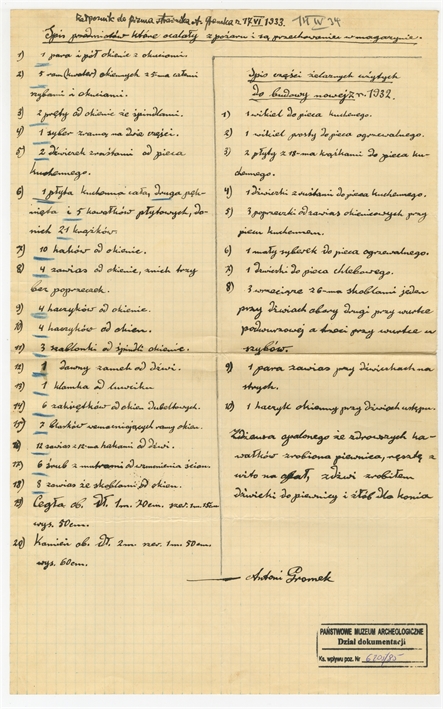 Załącznik do pisma strażnika A. Gromka z 17.VI.1933. 14 IV 34
Spis przedmiotów które ocalały z pożaru i są przechowane w magazynie.
1) 1 para i pół okienic z okuciami.
2) 5 ram (kwater) okiennych 25-ma całemi
szybami i okuciami.
3) 2 pręty od okienic ze śpindlami.
4) 1 syber z ramą na dwie części.
5) 2 dźwirek z rusztami od pieca
kuchennego.
6) 1 płyta kuchenna cała, druga pęk-
nięta i 5 kawałków płytowych, do
nich 21 krążków.
7) 10 haków od okienic.
8) 4 zawias od okienic, z nich trzy
bez poprzeczek.
9) 4 haczyków od okienic.
10) 4 haczyków od okien.
11) 3 szablonki od śpindli okienic.
12) 1 dawny zamek od dzwi.
13) 1 klamka od lufciku
14) 6 zakrętków od okien dubeltowych.
15) 7 blaszków wzmacniających ramy okien.
16) 12 zawias z 12-ma hakami od dzwi.
17) 6 śrub z mutrami od wzmocnienia ścian.
18) 8 zawias ze skoblami od okien.
19) Cegła ob. dł. 1 m. 70 cm. szer. 1 m.
wys. 50 cm.
20) Kamień ob. dł. 2 m szer. 1 m. 50 cm.
wys. 60 cm.
Spis części żelaznych użytych
do budowy nowej z r. 1932.
1) 1 wikiel do pieca kuchennego.
2) 1 wikiel prosty do pieca ogrzewalnego.
3) 2 płyty z 18-ma krążkami do pieca ku-
chennego.
4) 1 dźwiczki z rusztami do pieca kuchennego.
5) 3 poprzeczki od zawias okienicowych przy
piecu kuchennem.
6) 1 mały syberek do pieca ogrzewalnego.
7) 1 dźwiczki do pieca chlebowego.
8) 3 wrzeciądze z 6-ma skoblami jeden
przy dźwiach obory drugi przy furtce
podwórzowej a trzeci przy furtce w
szybów.
9) 1 para zawias przy dźwiczkach na
strych.
10) 1 haczyk okienny przy dźwiach ustępu.
Z drzewa opalonego ze zdrowszych ka-
wałków zrobiona piwnica, resztę z
użyto na opał, z dźwi zrobiłem
dźwiczki do piwnicy i żłób dla konia
Antoni Gromek
PAŃSTWOWE MUZEUM ARCHEOLOGICZNE
Dział dokumentacji
Ks. wpływu poz. Nr